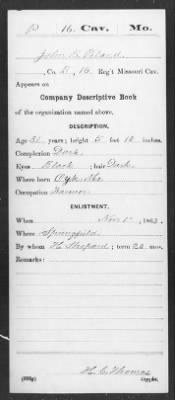 P 16. Cav. Mo.
John
, Co. 16 Reg't Missouri Cav.
Appears on
Company Descriptive Book
of the organization named above.
DESCRIPTION.
Age 31 years; height 5 feet 10 inches.
Complexion Dark
Eyes Black ; hair Dark
Where born Mo
Occupation Farmer
ENLISTMENT.
When Nov 1 , 1863.
Where Springfield
By whom H Shepard ; term 20 mos.
Remarks:
H. C. Thomas
Copyist.